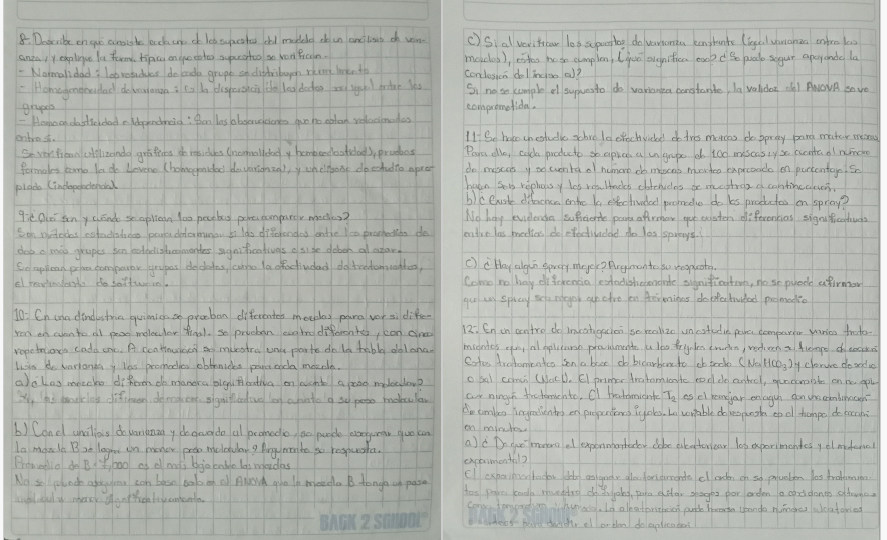 8- Describe en qué consiste cada uno de los supuestos del modelo de un análisis de varianza, y explique la forma típica en que estos supuestos se verifican.
- Normalidad: los residuos de cada grupo se distribuyen normalmente
- Homogeneidad de varianza: es la dispersión de los datos sea igual entre los
grupos
- Homocedasticidad e Idpendencia: Son las observaciones que no estan relacionadas
entre si.
Se verifican utilizando gráficos de residuos (normalidad y homocedasticidad), pruebas
formales como la de Levene (homogenidad de varianza), y un diseño de estudio apro-
piado (independencia).
9- ¿Qué son y cuándo se aplican las pruebas para comparar medias?
Son métodos estadísticos para determinar si las diferencias entre los promedios de
dos o más grupos son estadísticamente significativas o si se deben al azar.
Se aplican para comparar grupos de datos, como la efectividad de tratamientos,
el rendimiento de software.
10- En una industria química se prueban diferentes mezclas para ver si difie-
ren en cuanto al peso molecular final. Se prueban cuatro diferentes, con cinco
repeticiones cada una. A continuación se muestra una parte de la tabla del aná-
lisis de varianza y los promedios obtenidos para cada mezcla.
a) ¿Las mezclas difieren de manera significativa en cuanto a peso molecular?
las mezclas difieren de manera significativa en cuanto a su peso molecular
b) Con el análisis de varianza y de acuerdo al promedio, se puede asegurar que con
la mezcla B se logra un menor peso molecular? Argumente su respuesta.
Promedio de B: 7,000 es el más bajo entre las mezclas
No se puede asegurar con base solo en el ANOVA que la mezcla B tenga un peso
molecular menor significativamente.
BACK 2 SCHOOL
c) Si al verificar los supuestos de varianza constante (igual varianza entre las
mezclas), éstos no se cumplen, ¿qué significa eso? ¿Se puede seguir apoyando la
conclusión del inciso a)?
Si no se cumple el supuesto de varianza constante, la validez del ANOVA se ve
comprometida.
11- Se hace un estudio sobre la efectividad de tres marcas de spray para matar moscas.
Para ello, cada producto se aplica a un grupo de 100 moscas, y se cuenta el número
de moscas y se cuenta el número de moscas muertas expresado en porcentaje. Se
hacen seis réplicas y los resultados obtenidos se muestran a continuación.
b) ¿Existe diferencia entre la efectividad promedio de los productos en spray?
No hay evidencia suficiente para afirmar que existen diferencias significativas
entre las medias de efectividad de los sprays.
c) ¿Hay algún spray mejor? Argumente su respuesta.
Como no hay diferencia estadísticamente significativa, no se puede afirmar
que un spray sea mejor que otro en términos de efectividad promedio
12- En un centro de investigación se realiza un estudio para comparar varios trata-
mientos que, al aplicarse previamente a los frijoles crudos, reducen su tiempo de cocción
Estos tratamientos son a base de bicarbonato de sodio (NaHCO3) y cloruro de sodio
o sal común (NaCl). El primer tratamiento es el de control, que consiste en no apli-
car ningún tratamiento. El tratamiento T2 es el remojo en agua con
La variable de respuesta es el tiempo de cocción
en minutos.
a) ¿De qué manera el experimentador debe aleatorizar los experimentos y el material
experimental?
El experimentador debe asignar aleatoriamente el orden en se prueban los tratamien-
tos para cada muestra de frijoles, para evitar sesgos por orden o condiciones
La aleatorización puede hacerse usando números aleatorios
el orden de aplicación
BACK 2 SCHOOL